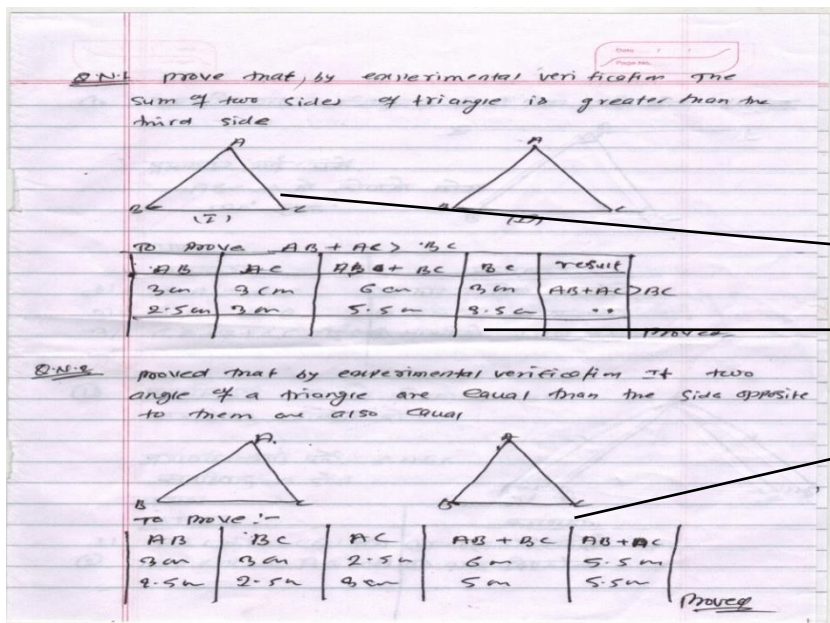 Date / /
Page No.
Q.N.1 prove that, by experimental verification The
sum of two sides of triangle is greater than the
third side
A A
B C B C
(I) (II)
To prove AB + AC > BC
AB AC AB + BC BC result
3cm 3cm 6cm 3cm AB+AC>BC
2.5cm 3cm 5.5cm 3.5cm ..
proved
Q.N.2 proved that by experimental verification If two
angle of a triangle are equal than the side opposite
to them are also equal
A. A
B C B C
To prove :-
AB BC AC AB + BC AB + AC
3cm 3cm 2.5m 6m 5.5m
2.5m 2.5m 3cm 5m 5.5m
Proved